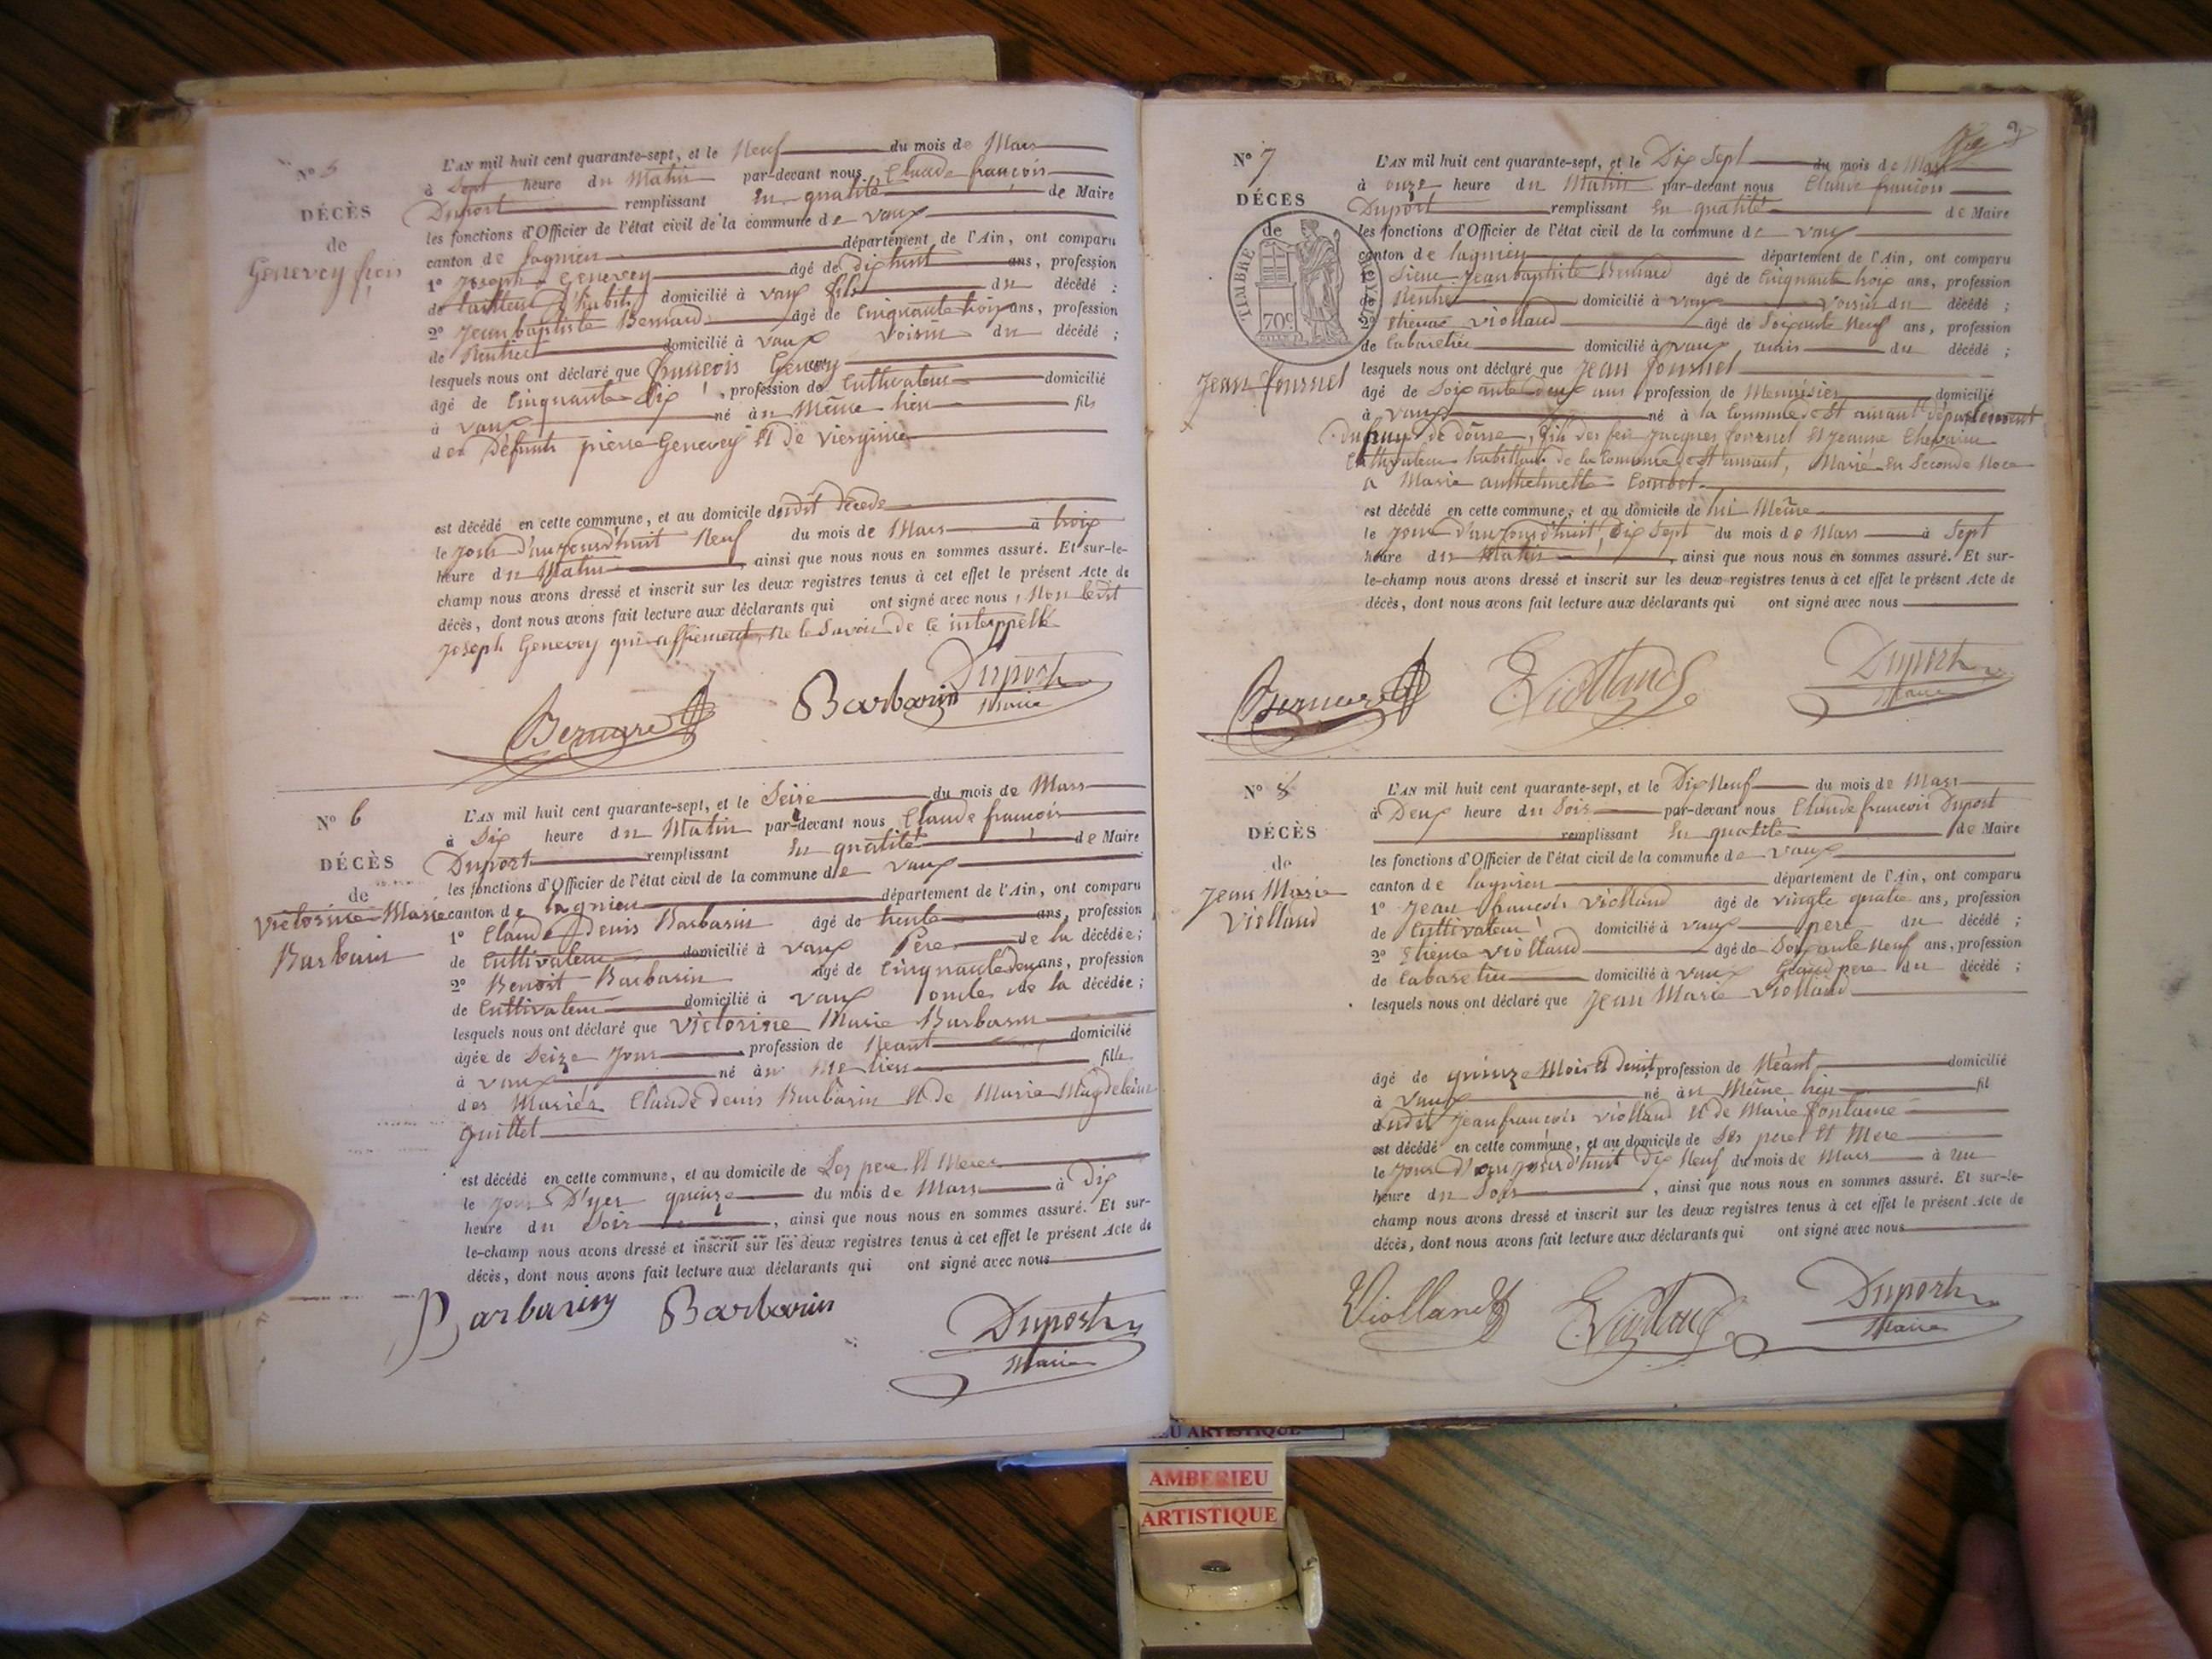 N° 5
DÉCÈS
de
Genevey
L'AN mil huit cent quarante-sept, et le Neuf du mois de Mars
à Sept heure du Matin par-devant nous Claude françois
Duport remplissant En qualité de Maire
les fonctions d'Officier de l'état civil de la commune de vaux
canton de lagnieu département de l'Ain, ont comparu
1° Joseph Genevey âgé de dix huit ans, profession
de tailleur d'habits domicilié à vaux fils du décédé ;
2° Jean baptiste Bernard âgé de Cinquante trois ans, profession
de Rentier domicilié à vaux voisin du décédé ;
lesquels nous ont déclaré que françois Genevey
âgé de Cinquante Dix , profession de Cultivateur domicilié
à vaux né au Même lieu fils
des Défunts pierre Genevey Et de vierginie
est décédé en cette commune, et au domicile dudit décédé
le jour d'aujourd'huit Neuf du mois de Mars à trois
heure du Matin , ainsi que nous nous en sommes assuré. Et sur-le-
champ nous avons dressé et inscrit sur les deux registres tenus à cet effet le présent Acte de
décès, dont nous avons fait lecture aux déclarants qui ont signé avec nous, Non ledit
Joseph Genevey qui ne le Savoir de Ce interppellé
Bernard Barbarin Duport
Maire
N° 6
DÉCÈS
de
Victorine Marie
Barbarin
L'AN mil huit cent quarante-sept, et le Seize du mois de Mars
à Dix heure du Matin par-devant nous Claude françois
Duport remplissant En qualité de Maire
les fonctions d'Officier de l'état civil de la commune de vaux
canton de lagnieu département de l'Ain, ont comparu
1° Claude Denis Barbarin âgé de trente ans, profession
de Cultivateur domicilié à vaux Père de la décédée;
2° Benoit Barbarin âgé de Cinquante deux ans, profession
de Cultivateur domicilié à vaux oncle de la décédée;
lesquels nous ont déclaré que victorine Marie Barbarin
âgée de Seize Jours profession de Néant domicilié
à vaux né au lieu fille
des Mariés Claude denis Barbarin Et de Marie Magdeleine
Guillet
est décédé en cette commune, et au domicile de Ses pere Et Mere
le jour D'yer quinze du mois de Mars à Dix
heure du Soir , ainsi que nous nous en sommes assuré. Et sur-
le-champ nous avons dressé et inscrit sur les deux registres tenus à cet effet le présent Acte de
décès, dont nous avons fait lecture aux déclarants qui ont signé avec nous
Barbarin Barbarin Duport
Maire
N° 7
DÉCÈS
de
TIMBRE ROYAL
70c
Jean fournel
L'AN mil huit cent quarante-sept, et le Dix Sept du mois de Mars
à onze heure du Matin par-devant nous Claude françois
Duport remplissant En qualité de Maire
les fonctions d'Officier de l'état civil de la commune de vaux
canton de lagnieu département de l'Ain, ont comparu
1° Sieur Jean baptiste Bernard âgé de Cinquante trois ans, profession
de Rentier domicilié à vaux voisin du décédé ;
2° Etienne violland âgé de Soixante Neuf ans, profession
de Cabaretier domicilié à vaux amis du décédé ;
lesquels nous ont déclaré que Jean fournel
âgé de Soixante deux ans profession de Menuisier domicilié
à vaux né à la Commune de St amant département
du puy de dôme, fils des feu Jacques fournel Et Jeanne
Cultivateur habittant de la Commune de St amant, Marié En Seconde Noce
a Marie anthelmette
est décédé en cette commune, et au domicile de lui Même
le jour d'aujourd'huit Dix Sept du mois de Mars à Sept
heure du Matin , ainsi que nous nous en sommes assuré. Et sur-
le-champ nous avons dressé et inscrit sur les deux registres tenus à cet effet le présent Acte de
décès, dont nous avons fait lecture aux déclarants qui ont signé avec nous
Bernard EViolland Duport
Maire
N° 8
DÉCÈS
de
Jean Marie
Viollaud
L'AN mil huit cent quarante-sept, et le Dix Neuf du mois de Mars
à Deux heure du Soir par-devant nous Claude françois Duport
remplissant En qualité de Maire
les fonctions d'Officier de l'état civil de la commune de vaux
canton de lagnieu département de l'Ain, ont comparu
1° Jean françois viollaud âgé de vingte quatre ans, profession
de Cultivateur domicilié à vaux pere du décédé ;
2° Etienne viollaud âgé de Soixante Neuf ans, profession
de Cabaretier domicilié à vaux Grand pere du décédé ;
lesquels nous ont déclaré que Jean Marie viollaud
âgé de quinze Mois Et demit profession de Néant domicilié
à vaux né au Même lieu fil
dudit Jean françois viollaud Et de Marie fontaine
est décédé en cette commune, et au domicile de Ses pere Et Mere
le Jour d'aujourd'huit Dix Neuf du mois de Mars à un
heure du Soir , ainsi que nous nous en sommes assuré. Et sur-le-
champ nous avons dressé et inscrit sur les deux registres tenus à cet effet le présent Acte de
décès, dont nous avons fait lecture aux déclarants qui ont signé avec nous
Violland EViolland Duport
Maire
ARTISTIQUE
AMBERIEU
ARTISTIQUE